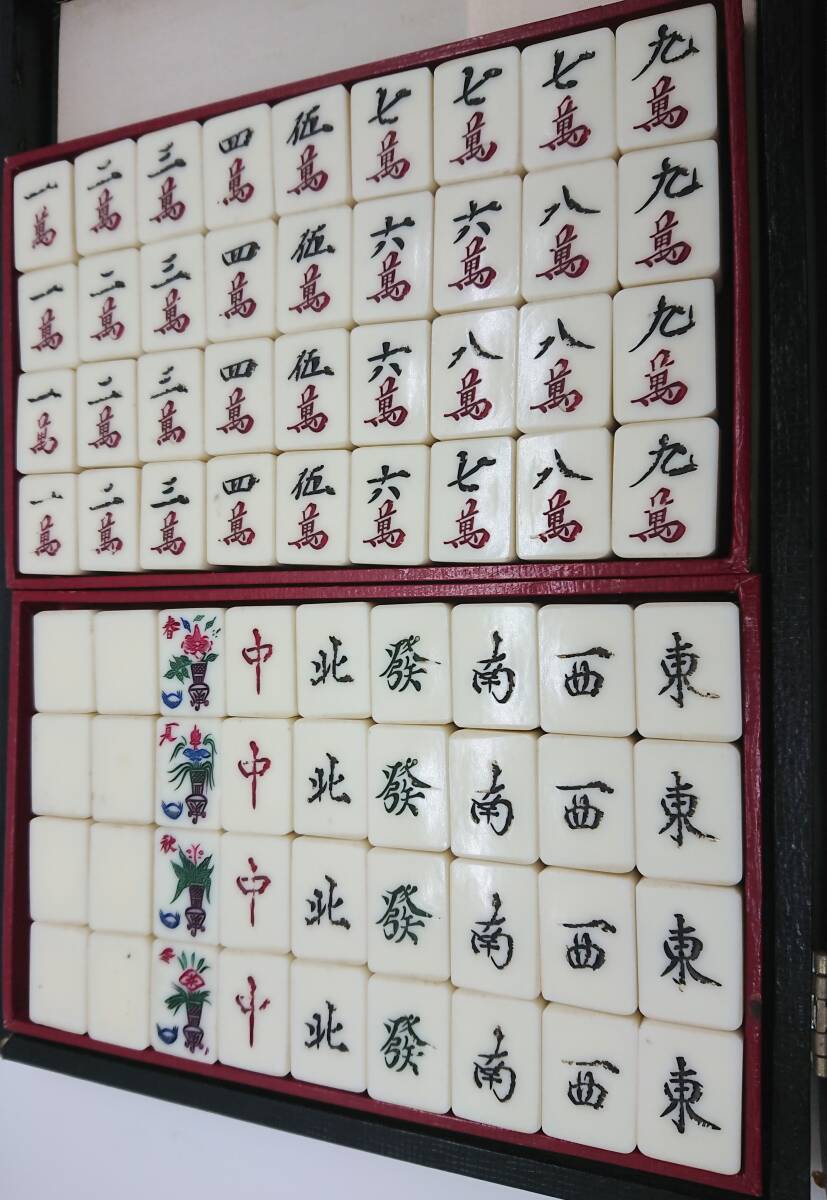 一萬 二萬 三萬 四萬 伍萬 七萬 七萬 七萬 九萬
一萬 二萬 三萬 四萬 伍萬 六萬 六萬 八萬 九萬
一萬 二萬 三萬 四萬 伍萬 六萬 八萬 八萬 九萬
一萬 二萬 三萬 四萬 伍萬 六萬 七萬 八萬 九萬
春 中 北 發 南 西 東
夏 中 北 發 南 西 東
秋 中 北 發 南 西 東
冬 中 北 發 南 西 東